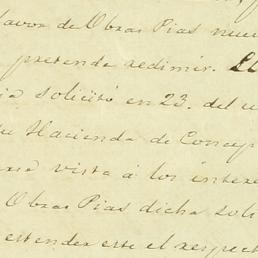 favor de Obras Pias nue
pretende redimir.
solicitó en 23. del
Hacienda de Concep
vista á los intere
Obras Pias dicha soli
estender este el respect